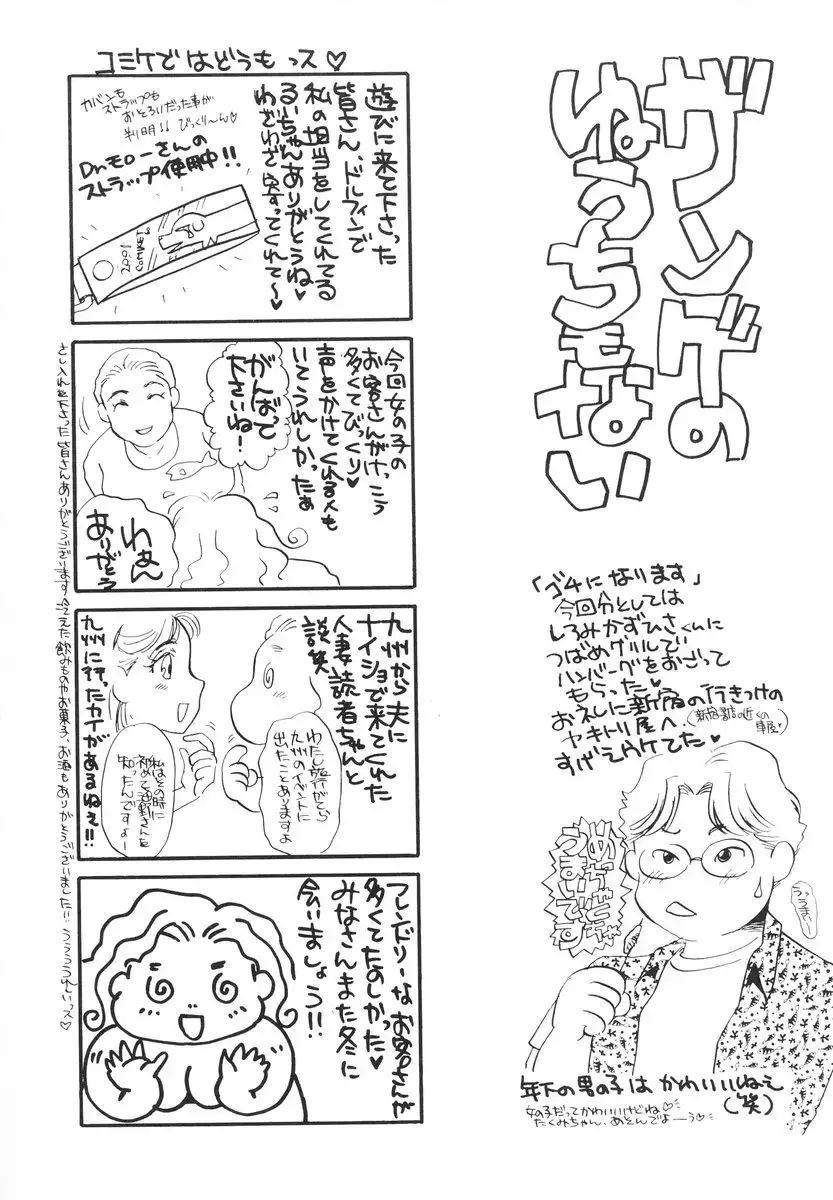 ガンバの
ゆうちもない
「ゴチになります」
今回分としては
しろみかずひさくんに
つばめグリルで
ハンバーグをおごって
もらった♥
お礼に新宿の行きつけの
ヤキトリ屋へ
すげえウケてた♥
めっちゃくちゃ
うまいです
うっうまい…
年下の男の子は かわいいねえ
(笑)
女の子だってかわいいけどね♡
たくみちゃん、あそんでよーう♡
コミケで はどうも っス♡
遊びに来て下さった
皆さん、ドルフィンで
私の担当をしてくれてる
るいちゃんありがとうね♥
わざわざ寄ってくれて〜♥
カバンも
ストラップも
おそろいだった事が
判明!! びっくり〜ん♡
Dr.モローさんの
ストラップ使用中!!
2001
COMIKET
今回女の子の
お客さんがけっこう
多くてびっくり♥
声をかけてくれる人も
いてうれしかったぁ
がんばって
下さいね!
わぁん
ありがとう
九州から夫に
ナイショで来てくれた
人妻読者ちゃんと
談笑
わたし旅行がてら
九州のイベントに
出たことありますよ
私はその時に
初めて
知ったんですよー
九州に行ったカイがあるねぇ!!
フレンドリーなお客さんが
多くてたのしかった♥
みなさんまた冬に
会いましょう!!
さし入れを下さった皆さんありがとうございます 冷えた飲みものやお菓子、お酒もありがとうございました!! うううれしいっス♡